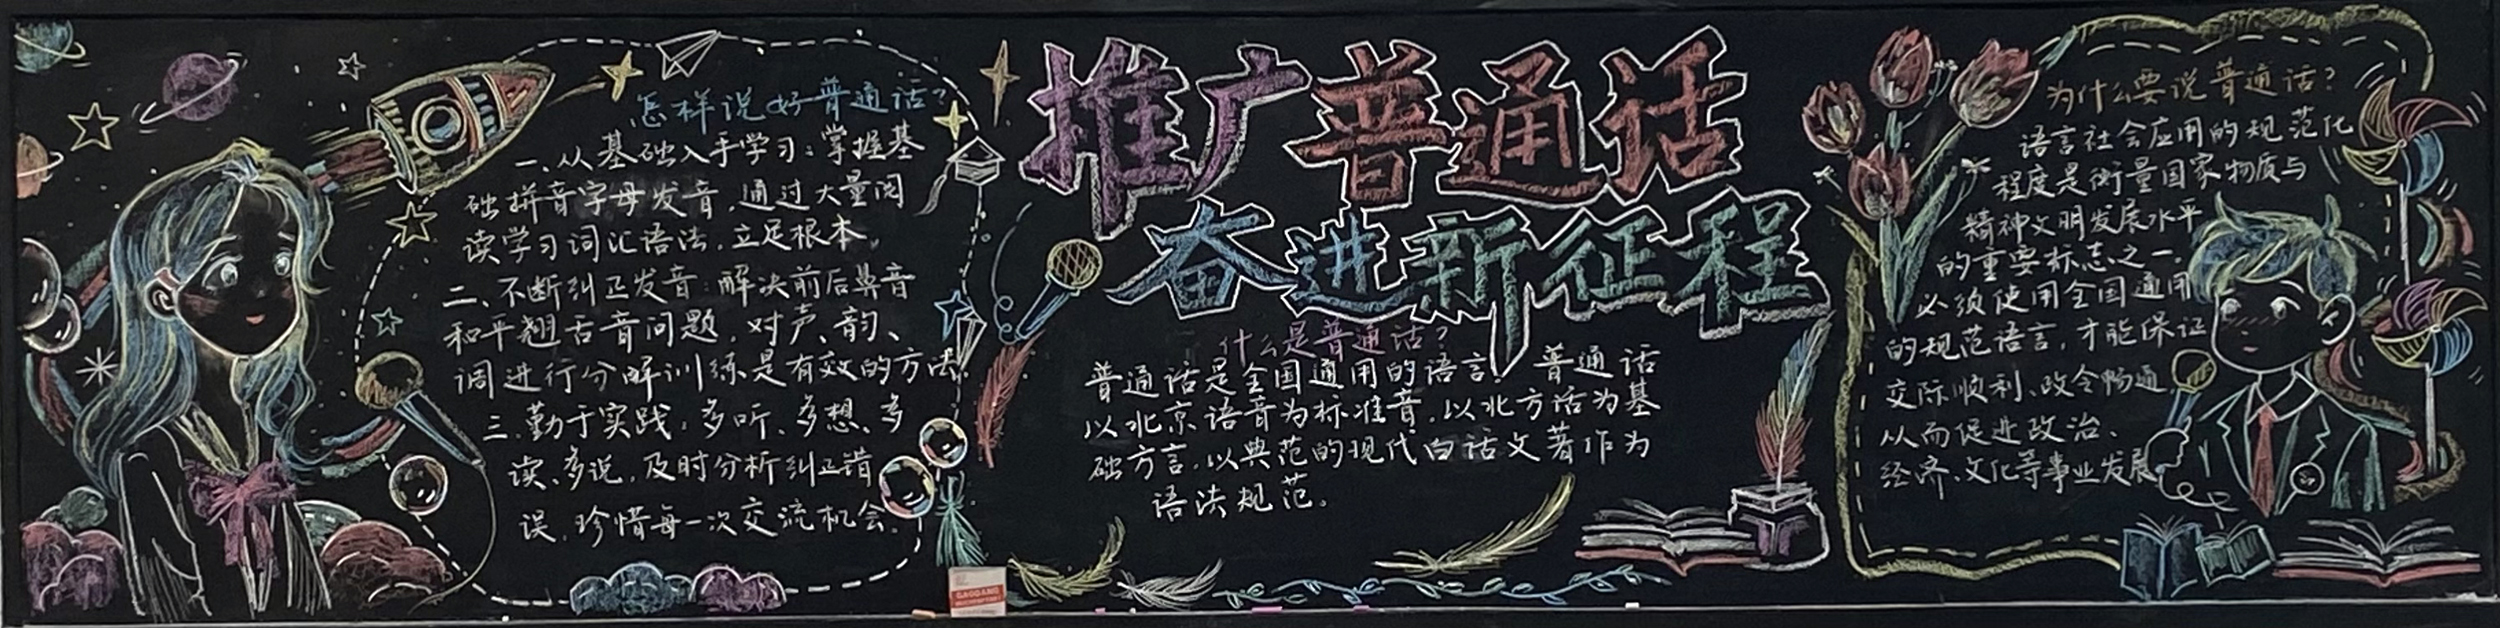 怎样说好普通话？
一、从基础入手学习：掌握基
础拼音字母发音，通过大量阅
读学习词汇语法，立足根本。
二、不断纠正发音：解决前后鼻音
和平翘舌音问题，对声、韵、
调进行分解训练是有效的方法。
三、勤于实践，多听、多想、多
读、多说，及时分析纠正错
误，珍惜每一次交流机会。
推广普通话
奋进新征程
什么是普通话？
普通话是全国通用的语言。普通话
以北京语音为标准音，以北方话为基
础方言，以典范的现代白话文著作为
语法规范。
为什么要说普通话？
语言社会应用的规范化
程度是衡量国家物质与
精神文明发展水平
的重要标志之一。
必须使用全国通用
的规范语言，才能保证
交际顺利、政令畅通，
从而促进政治、
经济、文化等事业发展
GAOGANG